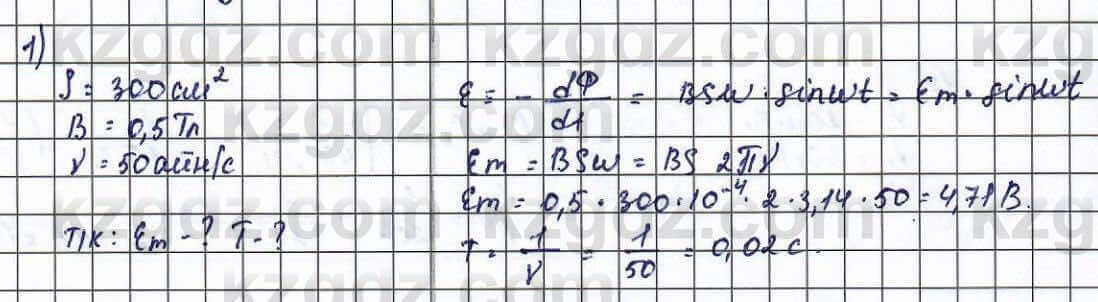 1)
S = 300 см²
B = 0,5 Тл
ν = 50 айн/с
Т/к: Ɛm - ? T - ?
Ɛ = - dФ/dt = BSω · sinωt = Ɛm · sinωt
Ɛm = BSω = BS 2πν
Ɛm = 0,5 · 300 · 10⁻⁴ · 2 · 3,14 · 50 = 4,71 В.
T = 1/ν = 1/50 = 0,02 с.
kzgdz.com